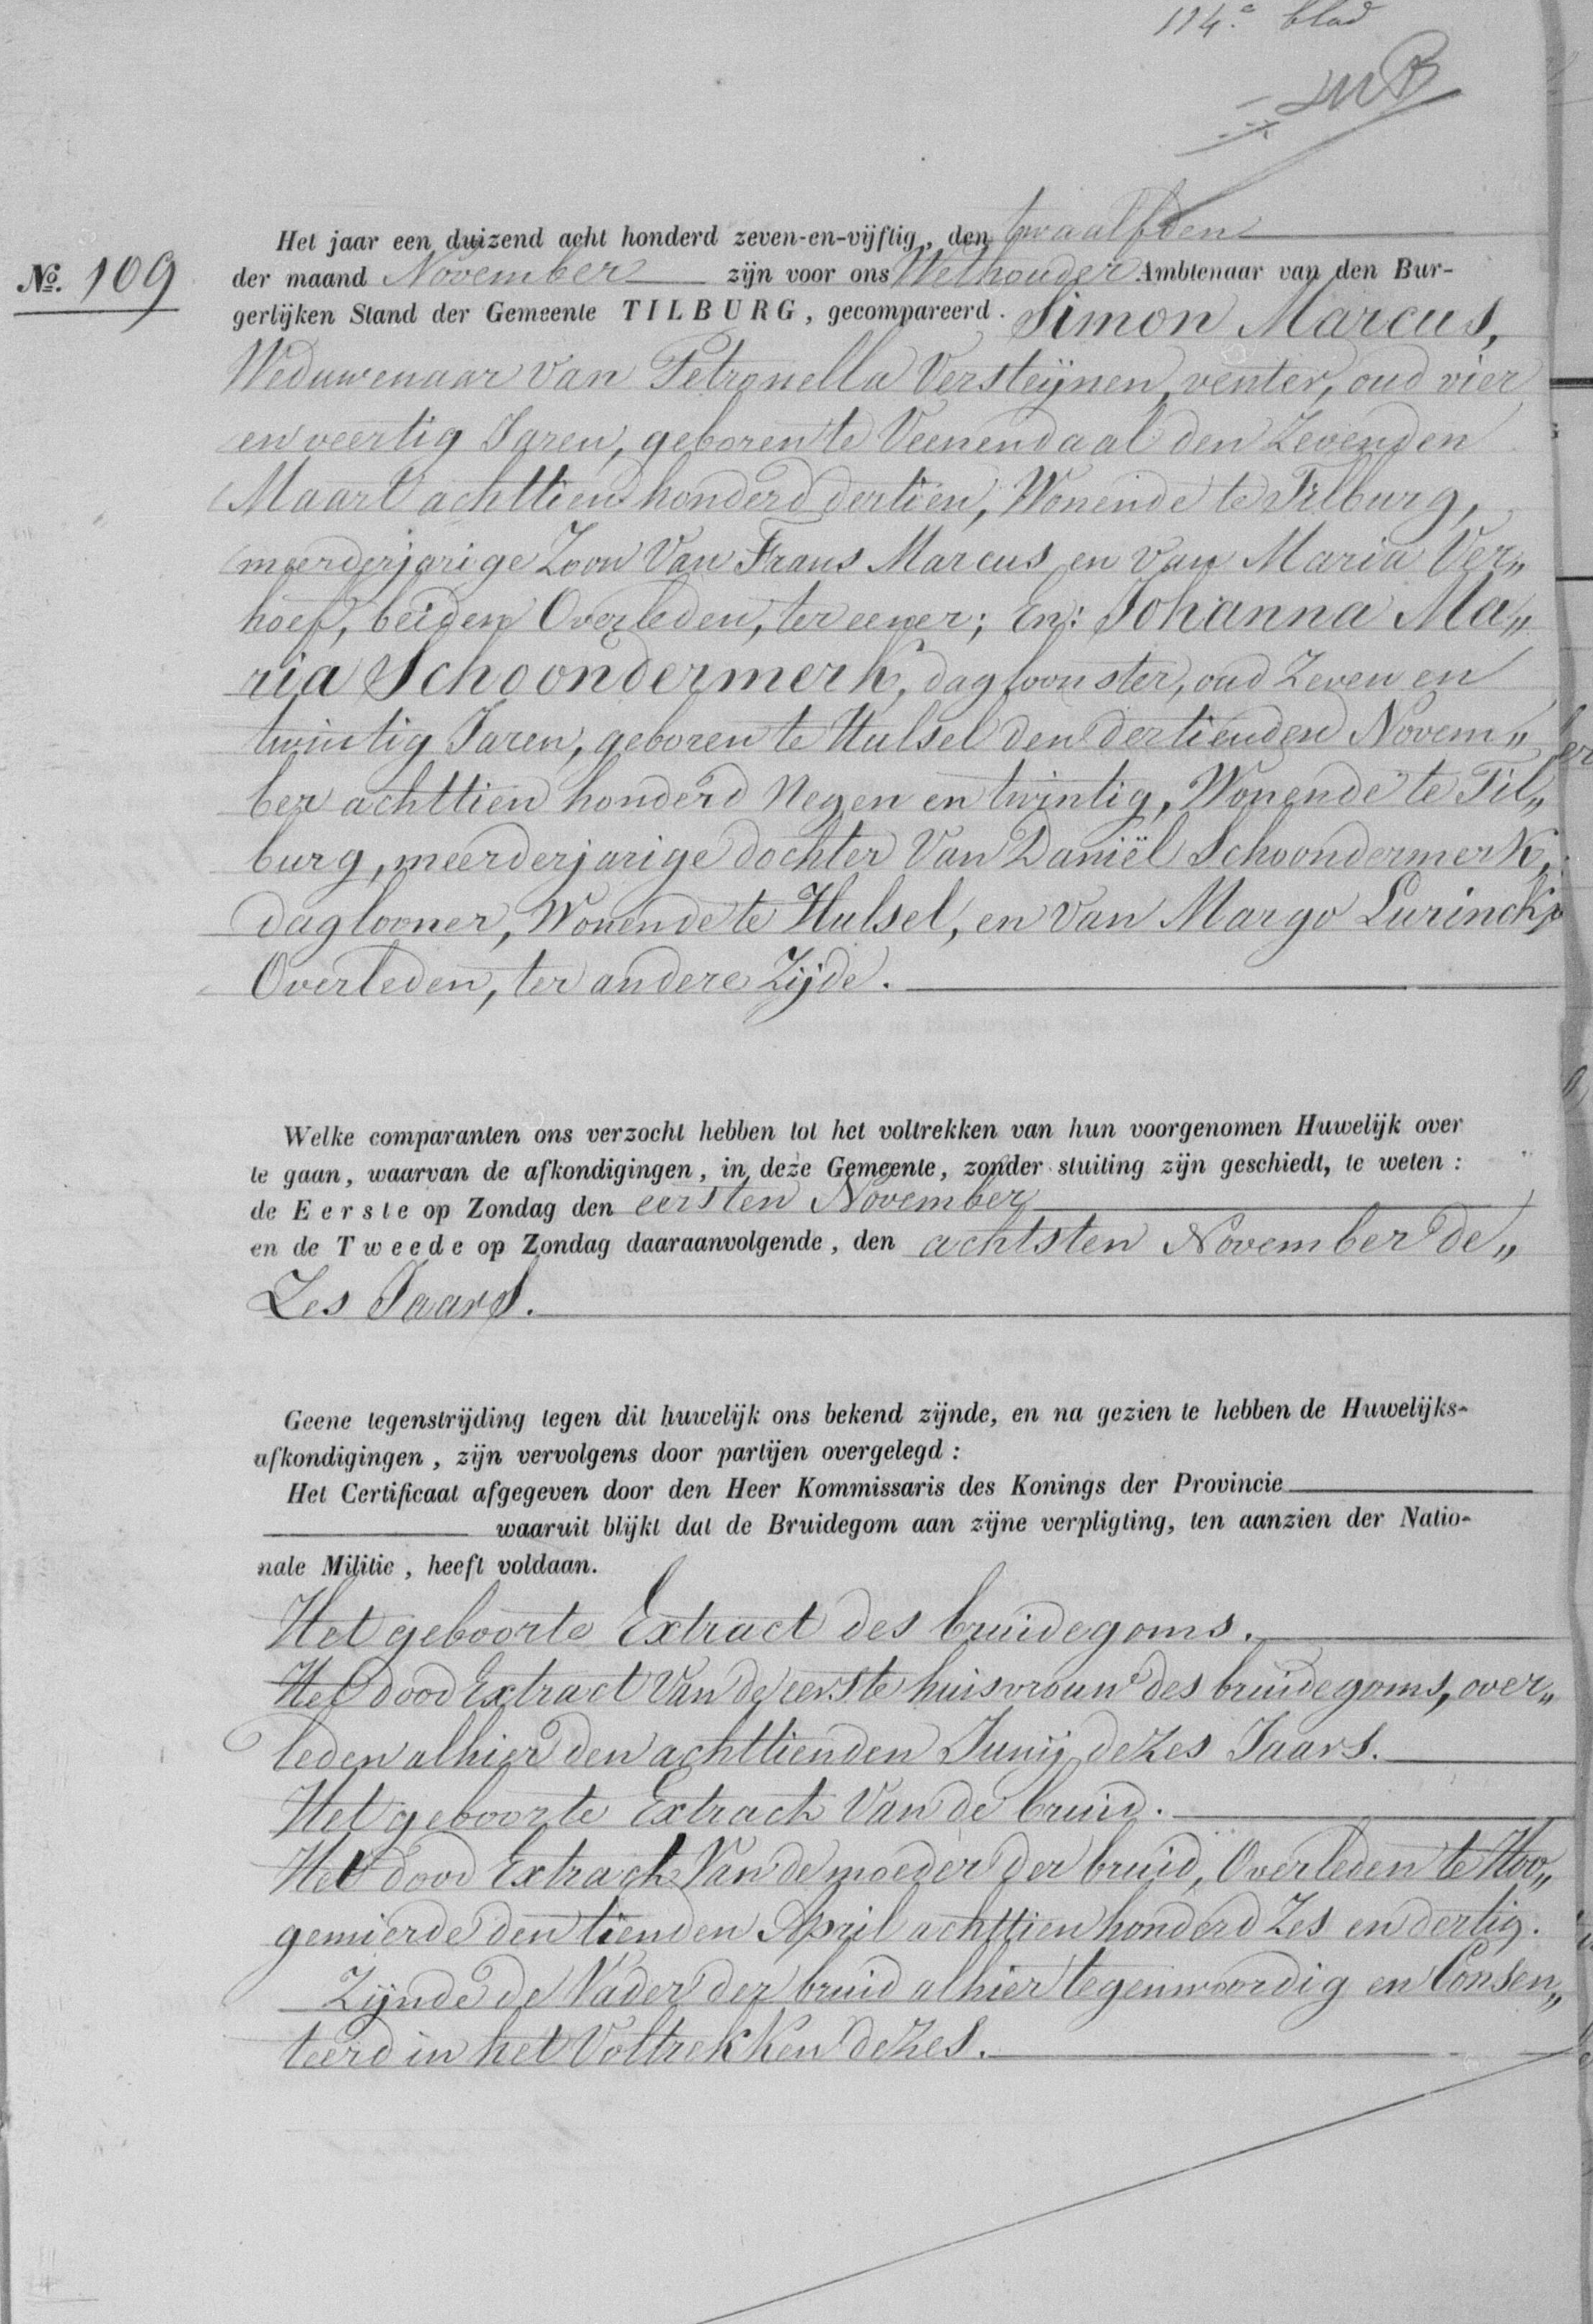 114e blad
MB
Het jaar een duizend acht honderd zeven-en-vijftig, den twaalfden
No. 109
der maand November zijn voor ons Wethouder Ambtenaar van den Bur-
gerlijken Stand der Gemeente TILBURG, gecompareerd. Simon Marcus,
Weduwenaar van Petronella Versteijnen, venter, oud vier
en veertig Jaren, geboren te Veenendaal den Zevenden
Maart achttien honderd dertien, Wonende te Tilburg,
meerderjarige Zoon Van Frans Marcus en van Maria Ver„
hoef, beiden Overleden, ter eener; En: Johanna Ma„
ria Schoondermerk, dagloonster, oud Zeven en
twintig Jaren, geboren te Hulsel den dertienden Novem„
ber achttien honderd Negen en twintig, Wonende te Til„
burg, meerderjarige dochter Van Daniël Schoondermerk,
daglooner, Wonende te Hulsel, en van Margo Lurinckx
Overleden, ter andere Zijde.
Welke comparanten ons verzocht hebben tot het voltrekken van hun voorgenomen Huwelijk over
te gaan, waarvan de afkondigingen, in deze Gemeente, zonder stuiting zijn geschiedt, te weten:
de Eerste op Zondag den eersten November
en de Tweede op Zondag daaraanvolgende, den achtsten November de„
Zes Jaars.
Geene tegenstrijding tegen dit huwelijk ons bekend zijnde, en na gezien te hebben de Huwelijks-
afkondigingen, zijn vervolgens door partijen overgelegd:
Het Certificaat afgegeven door den Heer Kommissaris des Konings der Provincie
waaruit blijkt dat de Bruidegom aan zijne verpligting, ten aanzien der Natio-
nale Militie, heeft voldaan.
Het geboorte Extract des bruidegoms.
Het dood Extract Van de eerste huisvrouw des bruidegoms, over„
leden alhier den achttienden Junij dezes Jaars.
Het geboorte Extract Van de bruid.
Het dood Extract Van de moeder der bruid, Overleden te Hoo„
gemierde den tienden April achttien honderd Zes en dertig.
Zijnde de Vader der bruid alhier tegenwoordig en Consen„
teerd in het Voltrekken dezes.